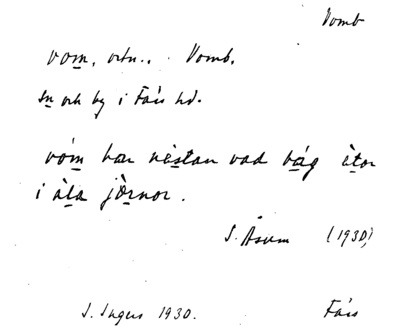 Vomb
vom, ortn.. Vomb.
sn och by i Färs hd.
vóm har nèstan vad båg ètor
i àla jòrnor.
S. Åsum (1930)
I. Ingers 1930. Färs